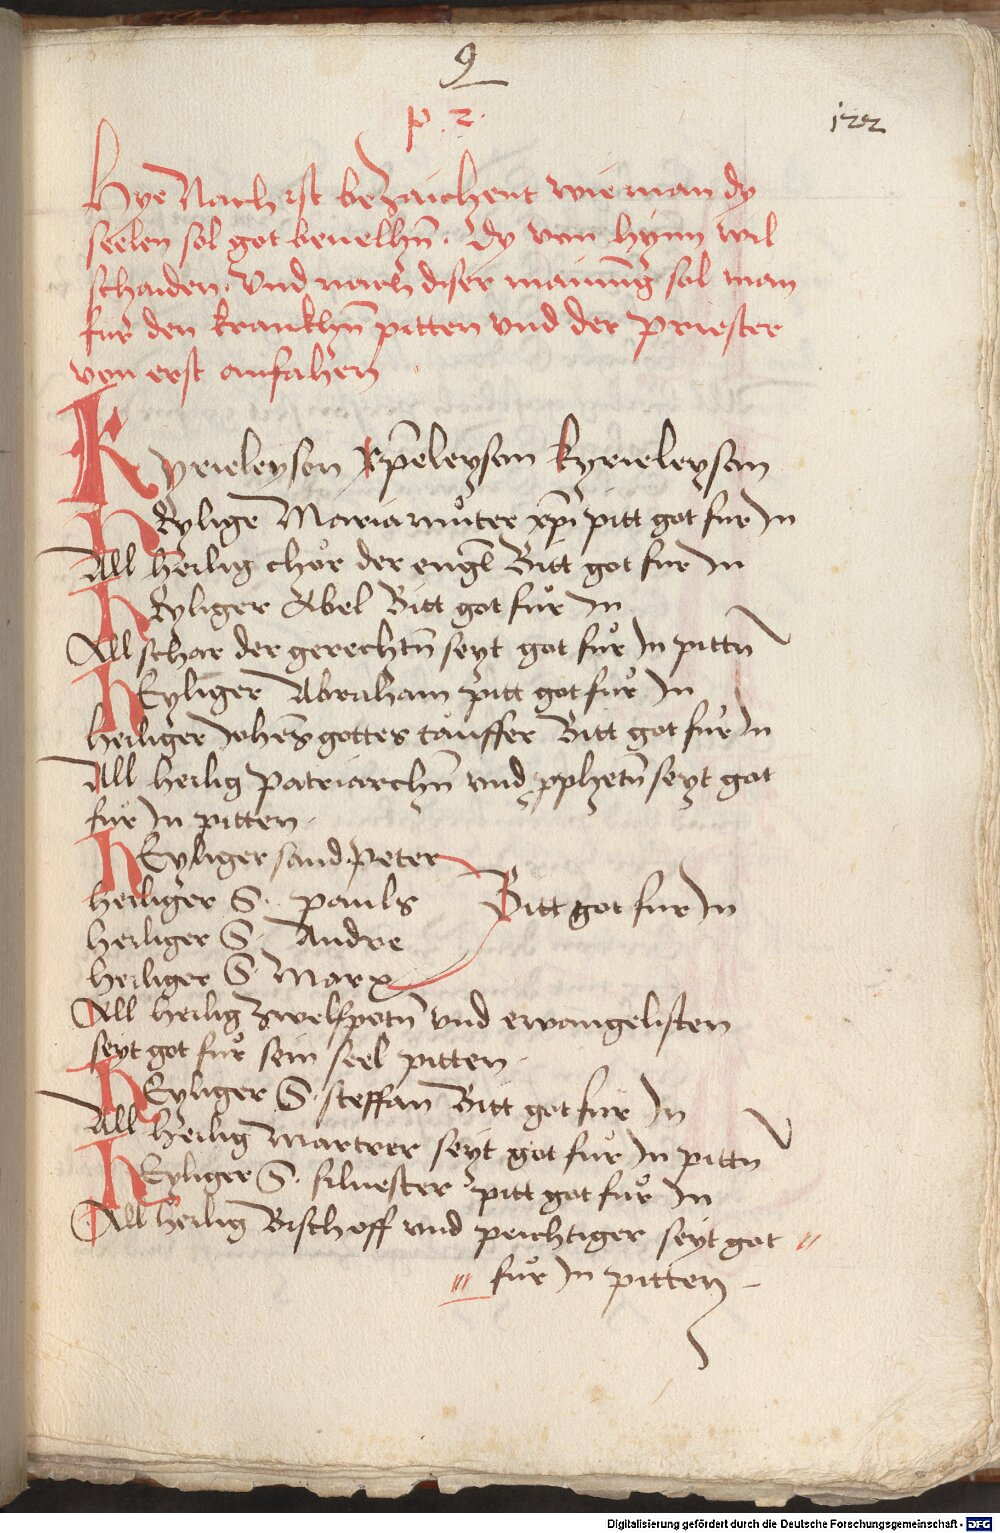 9
p. 2.
122
Hye Nach ist bezaichent wie man dy
seelen sol got beuelhn̄. dy von hynn wil
schaiden. Vnd nach diser mainu̅g sol man
fur den krankhn̄ pitten vnd der priester
von erst anfahen
Kyrieleyson Xp̄eleyson kyrieleyson
HEylige Maria muͦter xp̄i pitt got fur In
All heilig choͤr der engl̄ Bitt got fur In
HEyliger Abel Bitt got fuͦr In
All schar der gerechtn̄ seyt got fuͦr In pittn̄
HEyliger Abraham pitt got fuͦr In
Heiliger Johēs gottes tauffer Bitt got fur In
All heilig Patriarchn̄ vnd ꝓphetn̄ seyt got
fuͦr In pitten.
HEyliger sand Peter
heiliger S. pauls Bitt got fur In
heiliger S. Andre
heiliger S. Marx
All heilig zwelfpotn̄ vnd ewangelisten
seyt got fuͦr sein seel pitten.
HEyliger S. steffan Bitt got fur In
All heilig Martrer seyt got fuͦr In pittn̄
HEyliger S. siluester pitt got fuͦr In
All heilig Bischoff vnd peichtiger seyt got //
/// fuͦr In pitten –
Digitalisierung gefördert durch die Deutsche Forschungsgemeinschaft - DFG